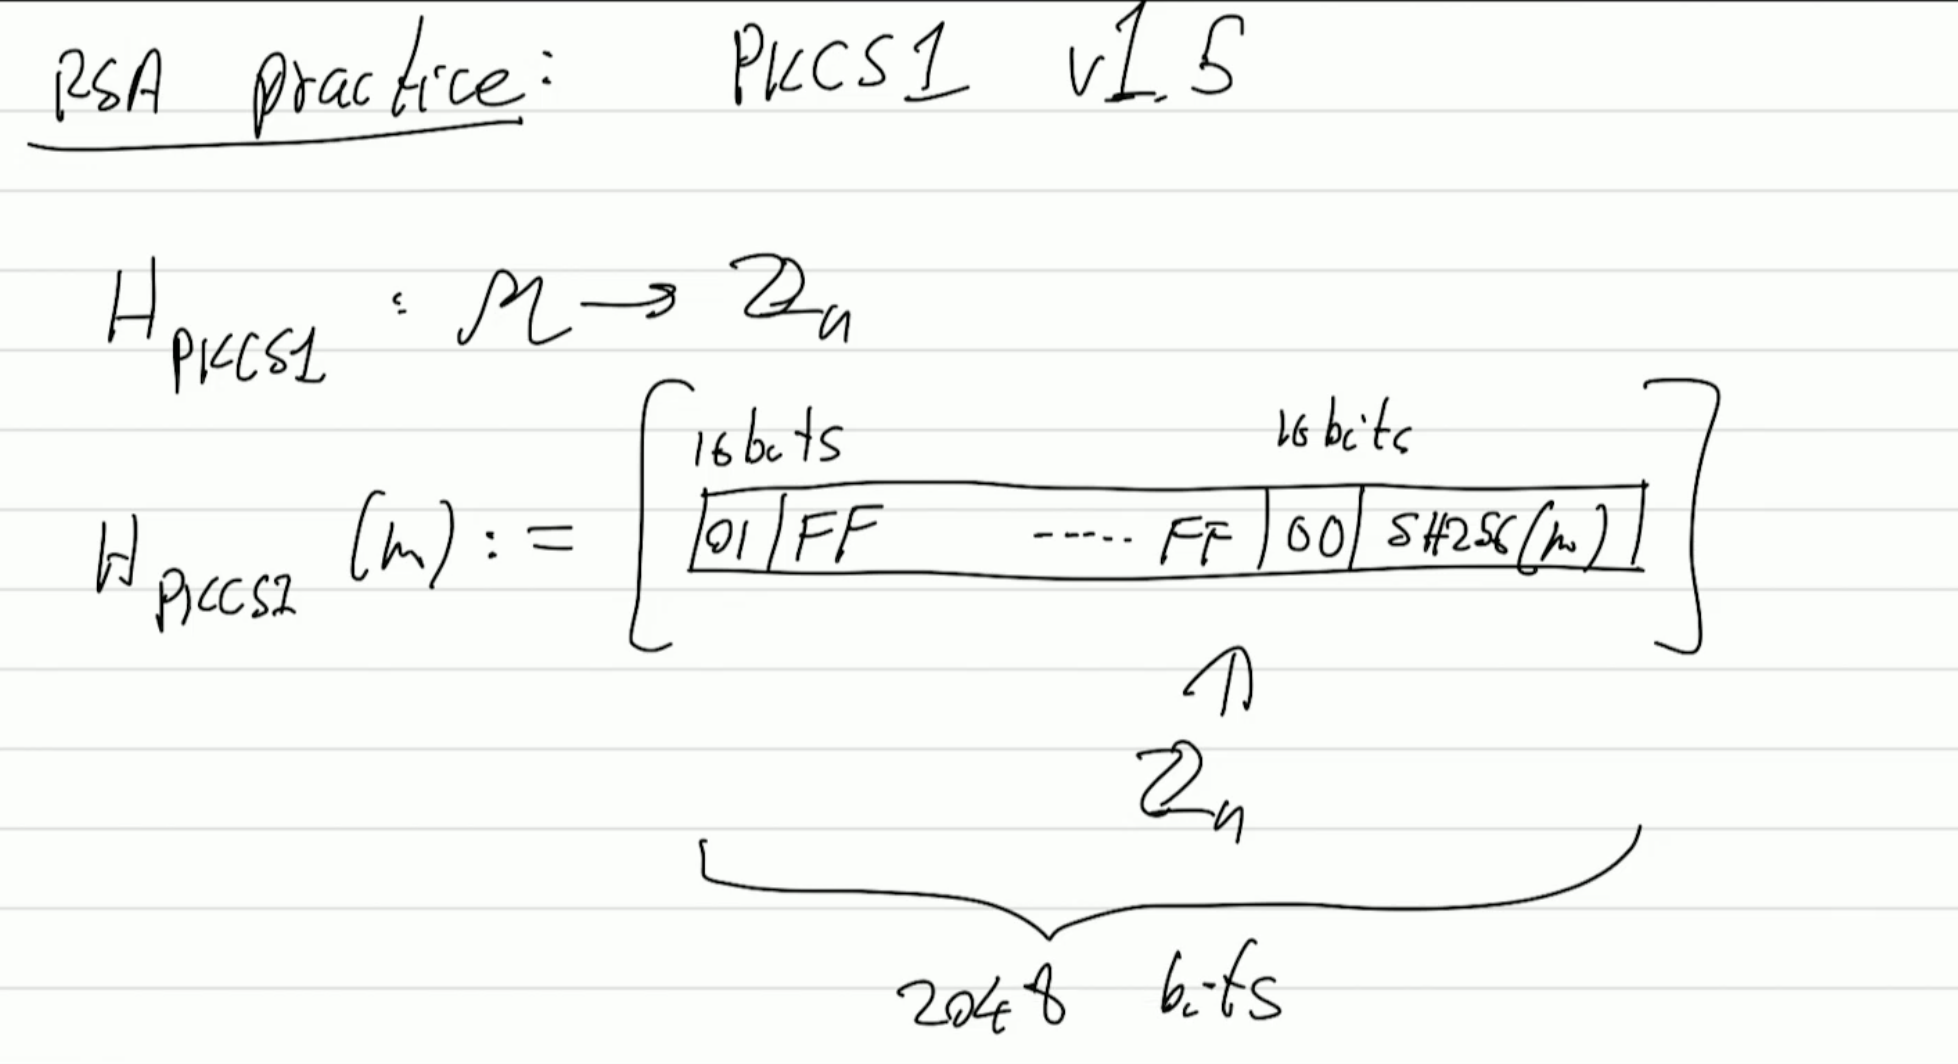 RSA practice: PKCS1 v1.5
H_PKCS1 : M → ℤ_n
16 bits 16 bits
H_PKCS1 (m) := [ 01 | FF ----- FF | 00 | SH256(m) ]
ℤ_n
2048 bits